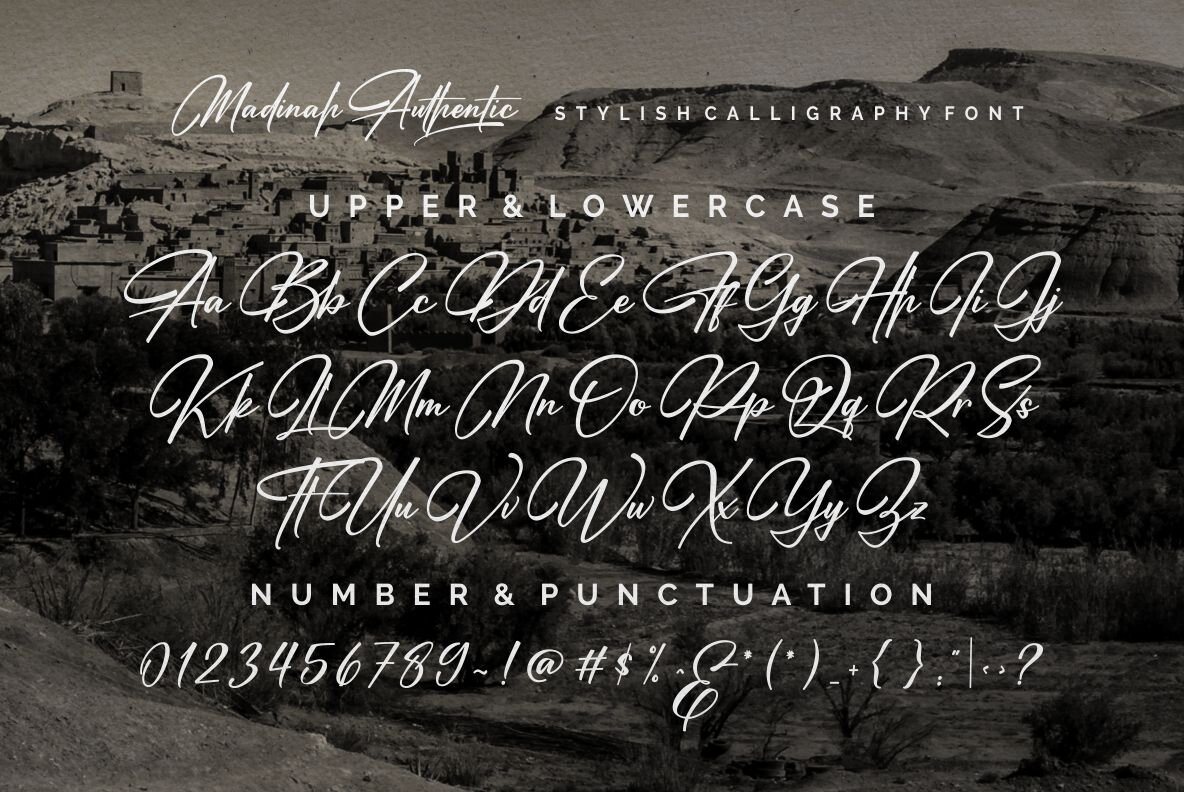 Madinah Authentic STYLISH CALLIGRAPHY FONT
UPPER & LOWERCASE
Aa Bb Cc Dd Ee Ff Gg Hh Ii Jj
Kk Ll Mm Nn Oo Pp Qq Rr Ss
Tt Uu Vv Ww Xx Yy Zz
NUMBER & PUNCTUATION
0123456789~!@#$%^&*(*)_+{}:"|<>?